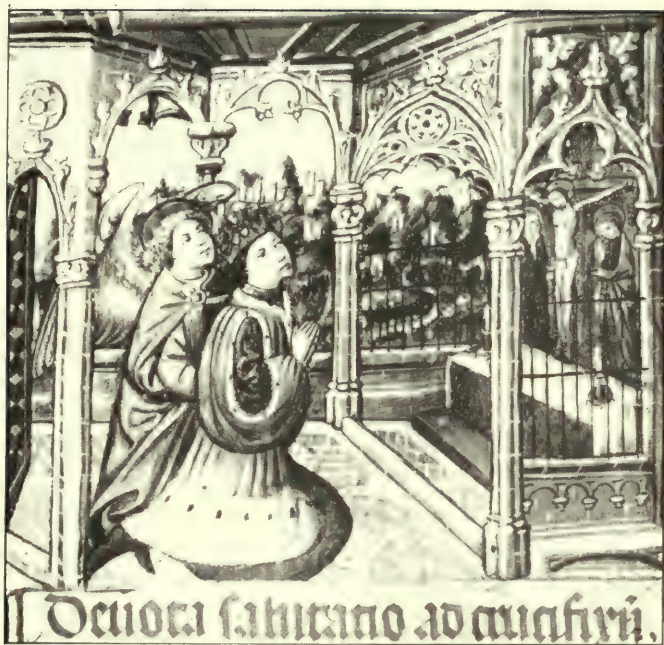 Deuota salutatio ad crucifixū.